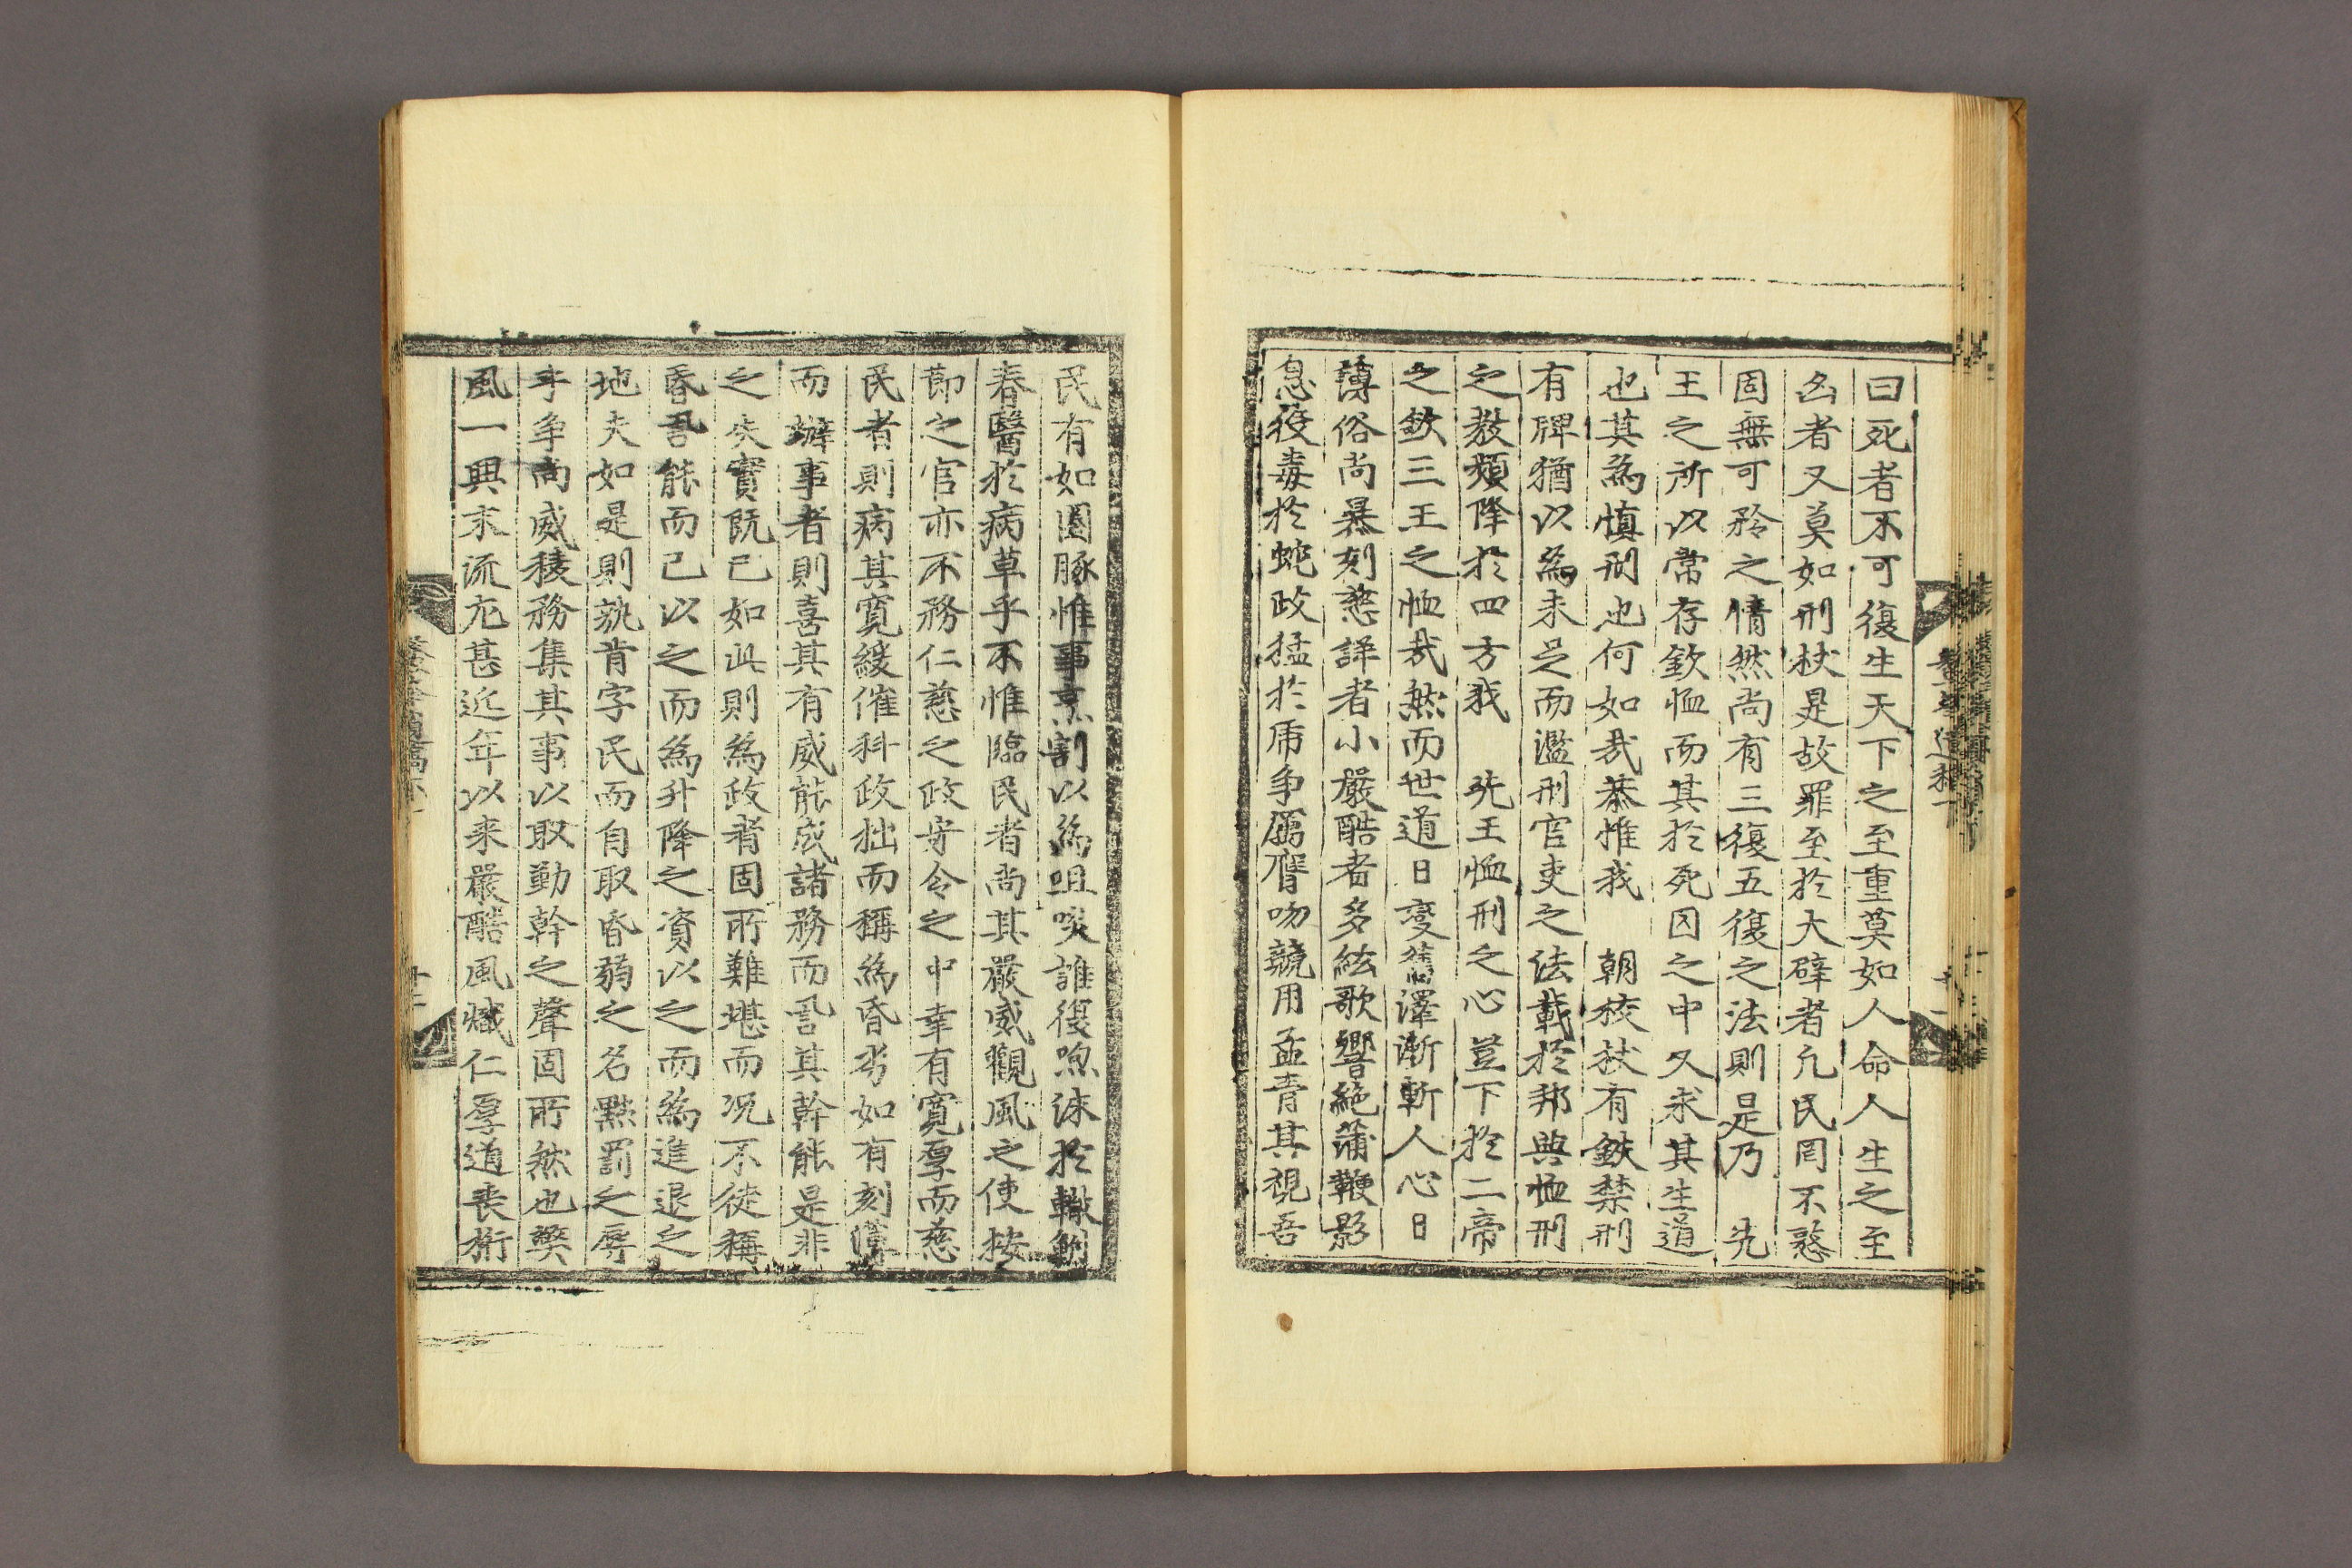 曰死者不可復生天下之至重莫如人命人生之至
凶者又莫如刑杖是故罪至於大辟者凢民罔不憝
固無可矜之情然尚有三復五復之法則是乃　先
王之所以常存欽恤而其於死囚之中又求其生道
也其為慎刑也何如㢤恭惟我　朝校杖有鈇禁刑
有碑猶以為未足而濫刑官吏之法載於邦典恤刑
之教頻降於四方我　先王恤刑之心豈下於二帝
之欽三王之恤㢤然而世道日变舊澤漸斬人心日
薄俗尚暴刻慈詳者小嚴酷者多絃歌響絕蒲鞭影
息役毒於蛇政猛於乕争厲脣吻競用孟青其視吾
民有如圈豚惟事烹割以為咀㗖誰復喣沫於轍鮒
春醫於病草乎不惟臨民者尚其嚴威觀風之使按
節之官亦不務仁慈之政守令之中幸有寬厚而慈
民者則病其寛緩催科政拙而稱為昏劣如有刻薄
而辦事者則喜其有威䏻成諸務而詡其幹䏻是非
之失實既已如此則為政者固所難堪而况不徒稱
昏詡䏻而已以之而為升降之資以之而為進退之
地夫如是則孰肯字民而自取昏弱之名㸃罰之辱
乎争尚威稜務集其事以取勤幹之聲固所然也獘
風一興末流尤甚近年以来嚴酷風熾仁厚道丧術